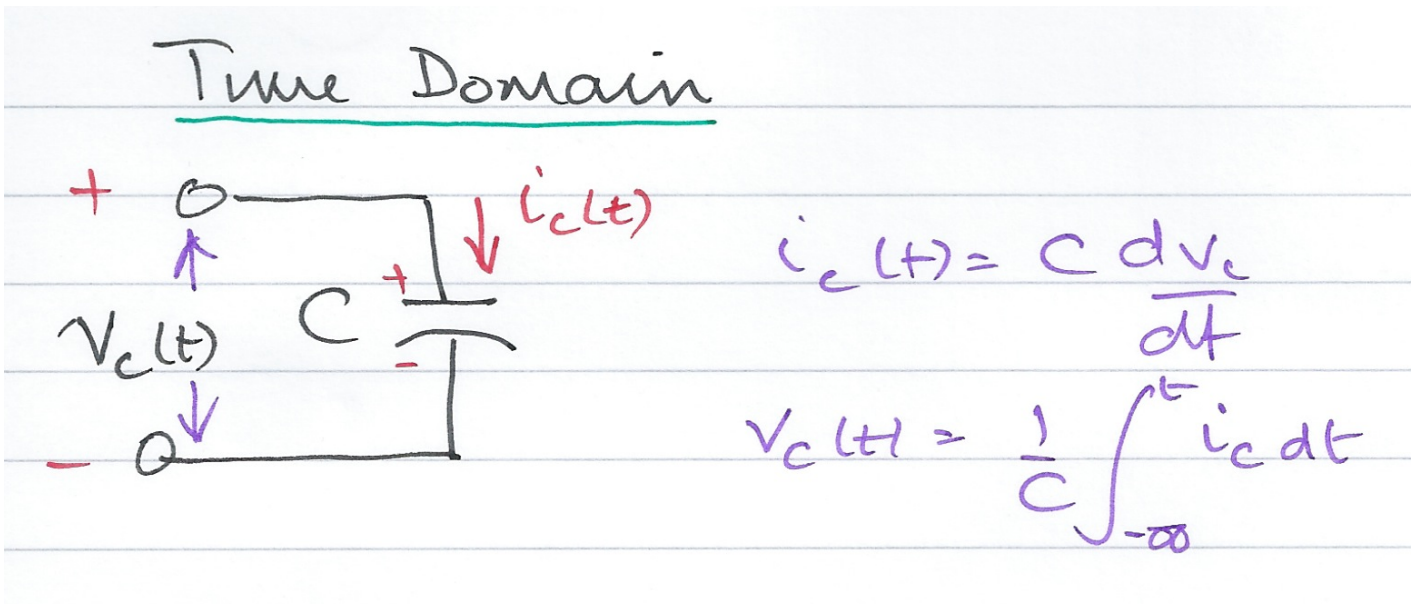 Time Domain
+ i_c(t)
+
C
V_c(t)
-
-
i_c(t) = C dv_c/dt
V_c(t) = 1/C ∫_{-∞}^{t} i_c dt